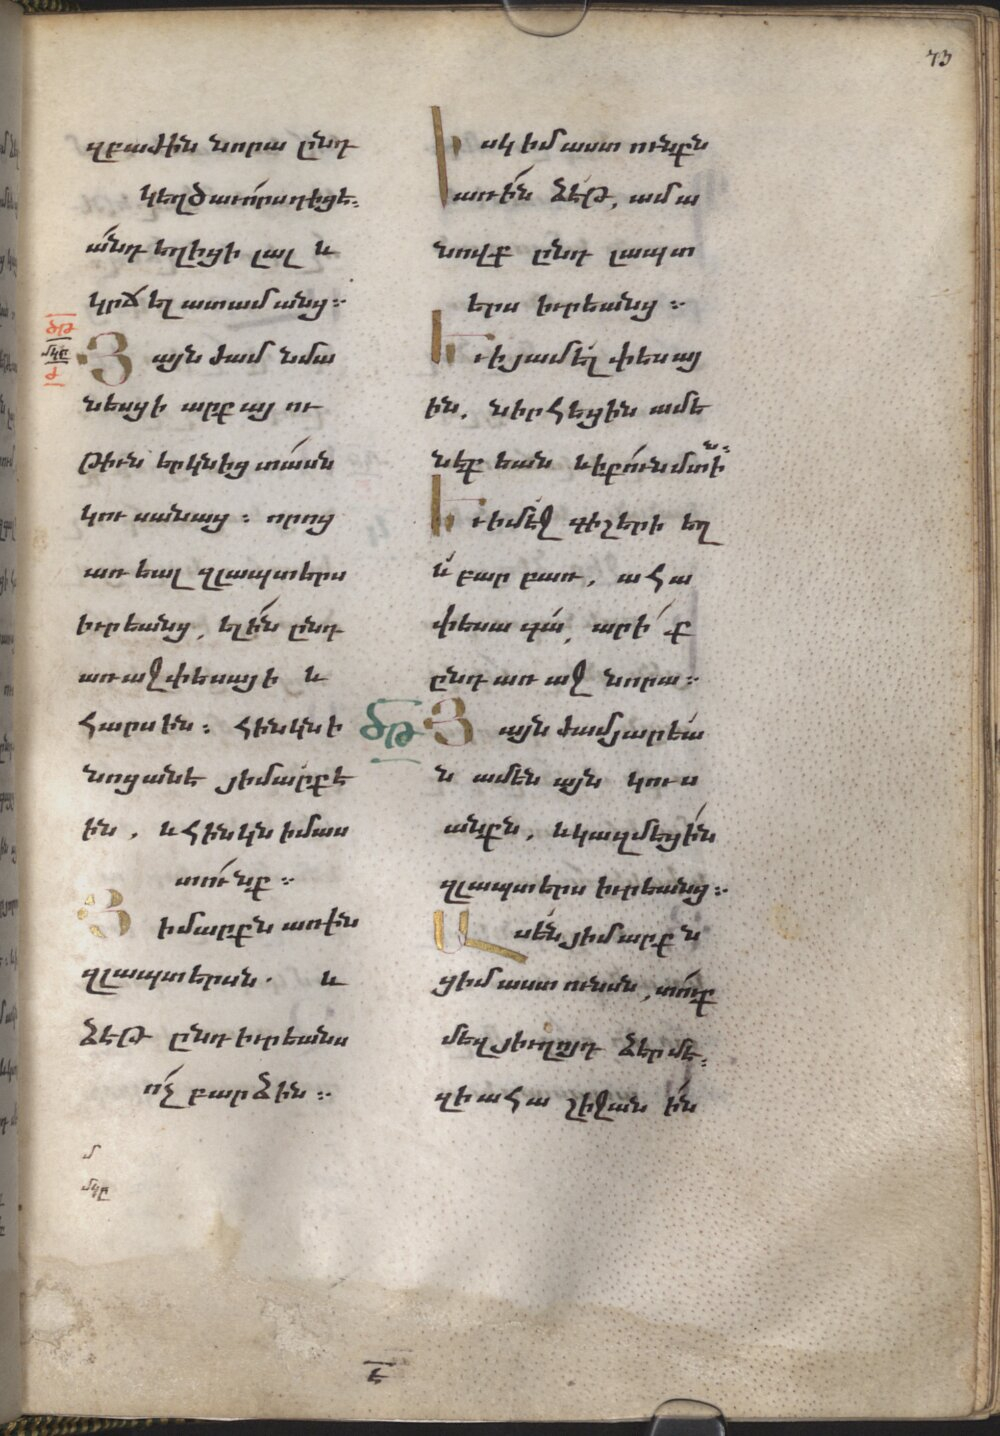 73
զբաժին նորա ընդ
կեղծաւորս դիցե։
անդ եղիցի լալ և
կրճել ատամանց։
ՅԹ
մկը
Յայնժամ նմա
նեսցի արքայու
թիւն երկնից տասն
կուսանաց։ որոց
առեալ զլապտերս
իւրեանց, ելին ընդ
առաջ փեսայի և
հարսին։ հինկն ի
նոցանե յիմարքե
ին, և հինկն իմաս
տունք։
Յիմարքն առին
զլապտերսն. և
ձէթ ընդ իւրեանս
ոչ բարձին։
մ
մկը
Իսկ իմաստունքն
առին ձէթ, ամա
նովք ընդ լապտ
երս իւրեանց։
Եւ ի յամել փեսայ
ին, նիրհեցին ամե
նեքեան և ի քուն մտին։
Եւ ի մեջ գիշերի եղ
և բարբառ, ահա
փեսա գա, արիք
ընդ առաջ նորա։
ՃԹ
Յայնժամ յարեա
ն ամենայն կուս
անքն, և կազմեցին
զլապտերս իւրեանց։
Ասեն յիմարքն
ցիմաստունսն, տուք
մեզ յիւղոյդ ձերմե։
զի ահա շիջանին
է